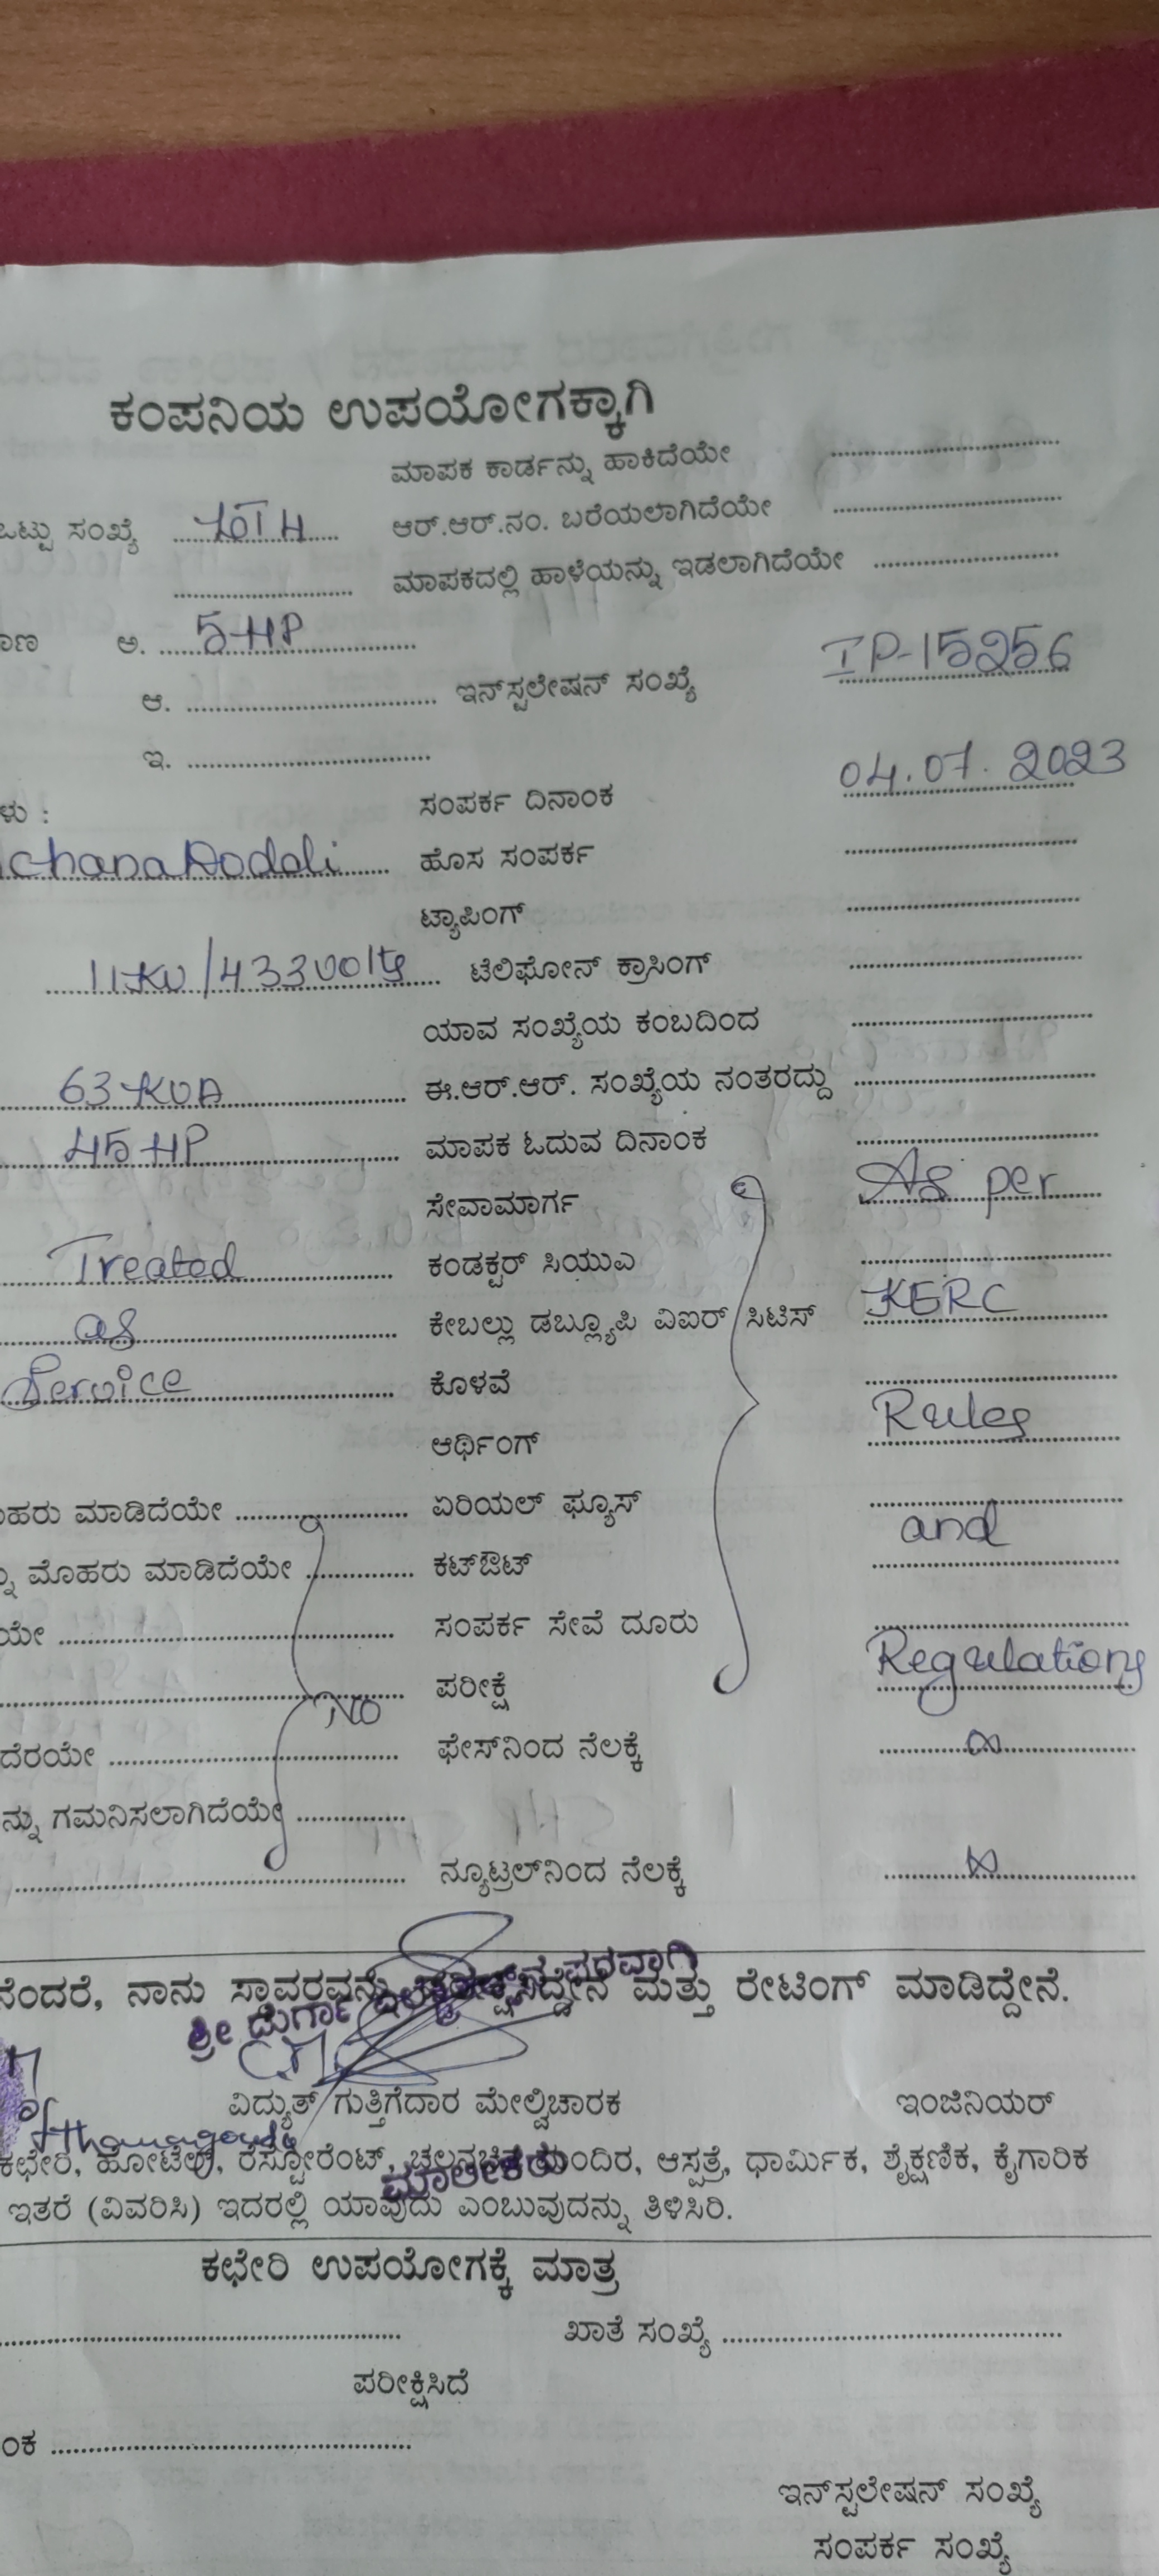 ಕಂಪನಿಯ ಉಪಯೋಗಕ್ಕಾಗಿ
ಮಾಪಕ ಕಾರ್ಡನ್ನು ಹಾಕಿದೆಯೇ
ಒಟ್ಟು ಸಂಖ್ಯೆ ಆರ್.ಆರ್.ನಂ. ಬರೆಯಲಾಗಿದೆಯೇ
ಮಾಪಕದಲ್ಲಿ ಹಾಳೆಯನ್ನು ಇಡಲಾಗಿದೆಯೇ
ಅ. 5 HP
ಆ. ಇನ್‌ಸ್ಟಲೇಷನ್ ಸಂಖ್ಯೆ IP-15256
ಇ.
ಳು : ಸಂಪರ್ಕ ದಿನಾಂಕ 04.07.2023
ಹೊಸ ಸಂಪರ್ಕ
ಟ್ಯಾಪಿಂಗ್
11KV/433volts ಟೆಲಿಫೋನ್ ಕ್ರಾಸಿಂಗ್
ಯಾವ ಸಂಖ್ಯೆಯ ಕಂಬದಿಂದ
63 KVA ಈ.ಆರ್.ಆರ್. ಸಂಖ್ಯೆಯ ನಂತರದ್ದು
45 HP ಮಾಪಕ ಓದುವ ದಿನಾಂಕ
ಸೇವಾಮಾರ್ಗ As per
Treated ಕಂಡಕ್ಟರ್ ಸಿಯುಎ
as ಕೇಬಲ್ಲು ಡಬ್ಲ್ಯೂಪಿ ವಿಐರ್ ಸಿಟಿಸ್ KERC
Service ಕೊಳವೆ
ಆರ್ಥಿಂಗ್ Rules
ಹರು ಮಾಡಿದೆಯೇ ಏರಿಯಲ್ ಫ್ಯೂಸ್
ಮೊಹರು ಮಾಡಿದೆಯೇ ಕಟ್‌ಔಟ್ and
ಯೇ ಸಂಪರ್ಕ ಸೇವೆ ದೂರು
No ಪರೀಕ್ಷೆ Regulations
ದೆರಯೇ ಫೇಸ್‌ನಿಂದ ನೆಲಕ್ಕೆ ∞
ನ್ನು ಗಮನಿಸಲಾಗಿದೆಯೇ
ನ್ಯೂಟ್ರಲ್‌ನಿಂದ ನೆಲಕ್ಕೆ
ನೆಂದರೆ, ನಾನು ಸ್ಥಾವರವನ್ನು ಮತ್ತು ರೇಟಿಂಗ್ ಮಾಡಿದ್ದೇನೆ.
ಶ್ರೀ ದುರ್ಗಾ ಪರವಾಗಿ
ವಿದ್ಯುತ್ ಗುತ್ತಿಗೆದಾರ ಮೇಲ್ವಿಚಾರಕ ಇಂಜಿನಿಯರ್
ಮಾಲೀಕರು
ಕಛೇರಿ, ಹೋಟೆಲ, ರೆಸ್ಟೋರೆಂಟ್, ಚಲನಚಿತ್ರ ಮಂದಿರ, ಆಸ್ಪತ್ರೆ, ಧಾರ್ಮಿಕ, ಶೈಕ್ಷಣಿಕ, ಕೈಗಾರಿಕ
ಇತರೆ (ವಿವರಿಸಿ) ಇದರಲ್ಲಿ ಯಾವುದು ಎಂಬುವುದನ್ನು ತಿಳಿಸಿರಿ.
ಕಛೇರಿ ಉಪಯೋಗಕ್ಕೆ ಮಾತ್ರ
ಖಾತೆ ಸಂಖ್ಯೆ
ಪರೀಕ್ಷಿಸಿದೆ
ಂಕ
ಇನ್‌ಸ್ಟಲೇಷನ್ ಸಂಖ್ಯೆ
ಸಂಪರ್ಕ ಸಂಖ್ಯೆ